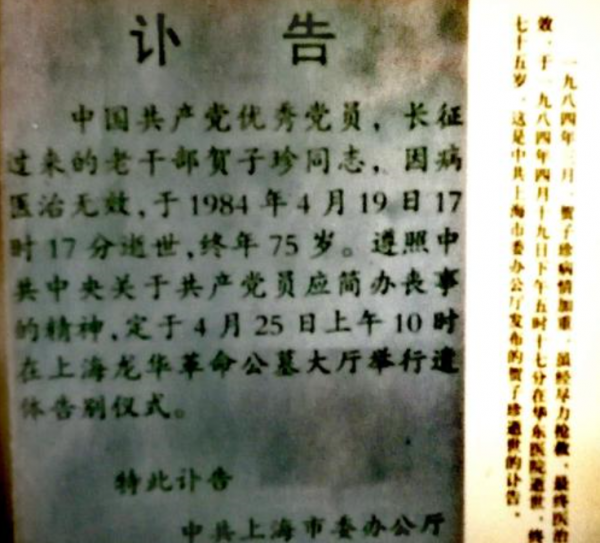 讣 告
中国共产党优秀党员，长征
过来的老干部贺子珍同志，因病
医治无效，于1984年4月19日17
时17分逝世，终年75岁。遵照中
共中央关于共产党员应简办丧事
的精神，定于4月25日上午10时
在上海龙华革命公墓大厅举行遗
体告别仪式。
特此讣告
中共上海市委办公厅
一九八四年三月，贺子珍病情加重，虽经尽力抢救，最终医治
效，于一九八四年四月十九日下午五时十七分在华东医院逝世，终
七十五岁。这是中共上海市委办公厅发布的贺子珍逝世的讣告。